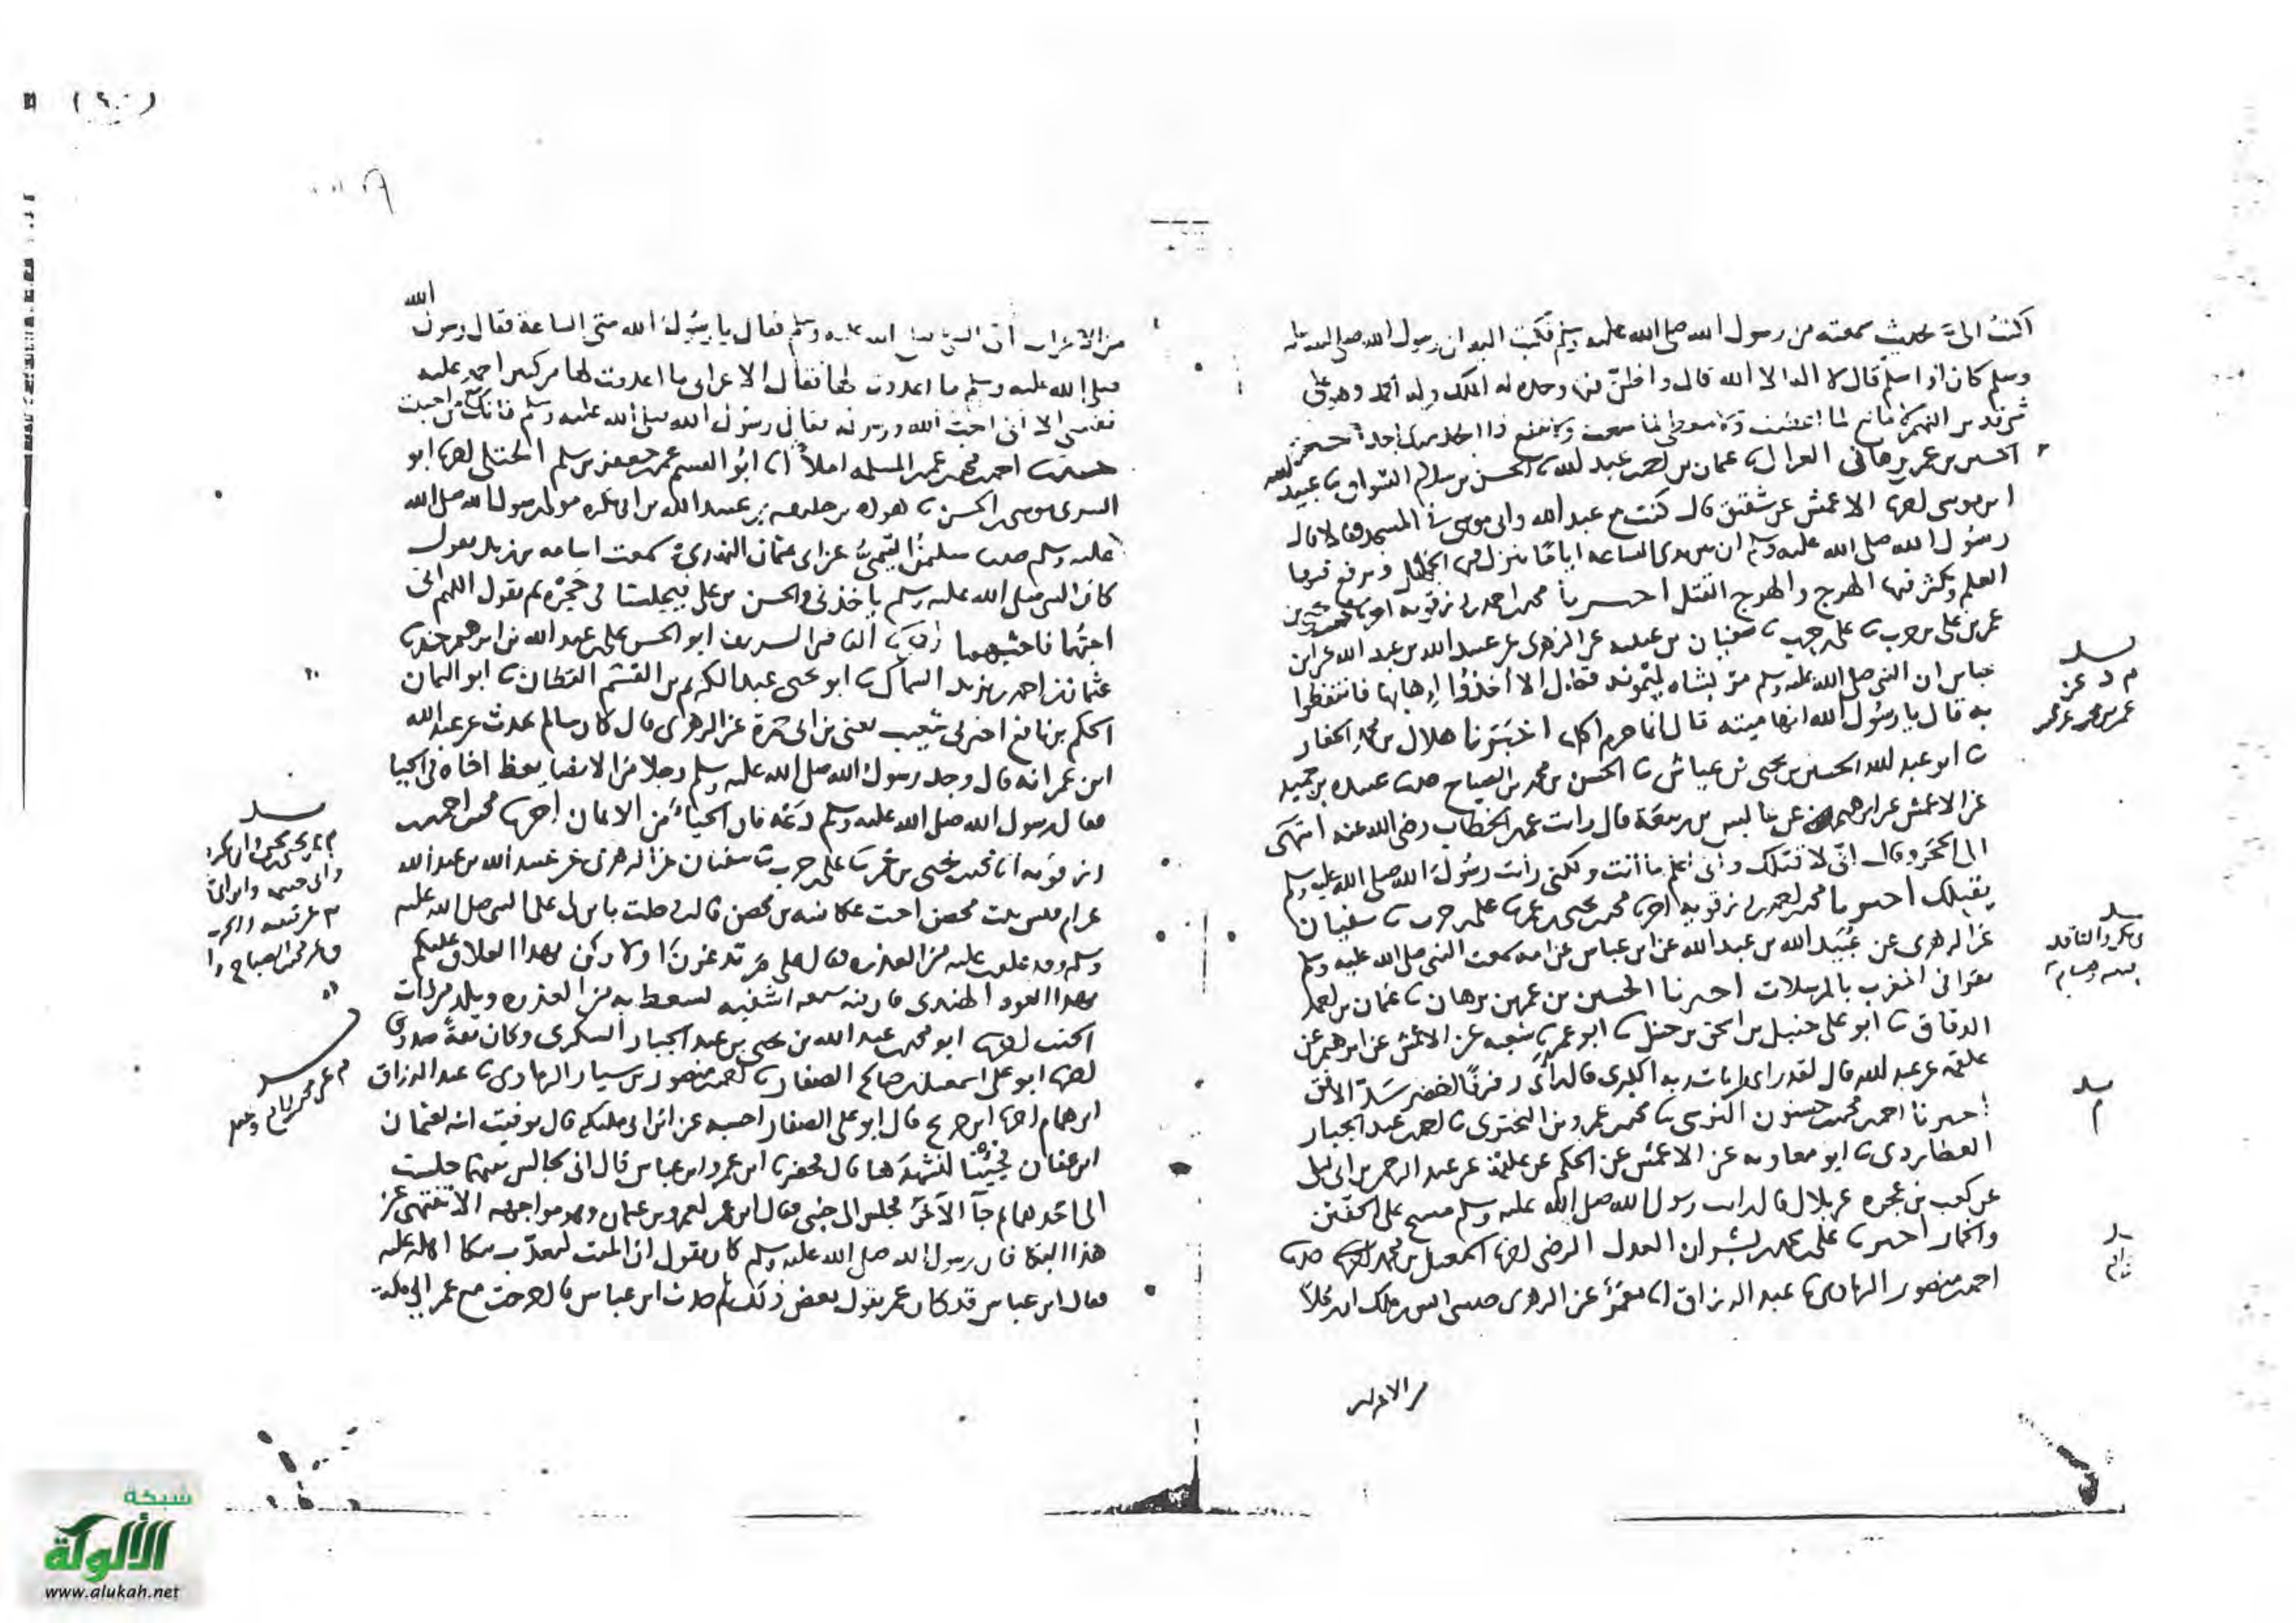 اكتب الىّ بحديث سمعته من رسول الله صلى الله عليه وسلم فكتب اليه ان رسول الله صلى الله عليه
وسلم كان اذا سلم قال لا اله الا الله قال واظنّ فيها وحده له الملك وله الحمد وهو على
الحسين بن عمر بن برهان الغزال ثنا عثمان بن احمد بن عبد الله ثنا الحسن بن سلام السواق ثنا عبيد الله
ابن موسى اخبرنا الاعمش عن شقيق قال كنت مع عبد الله وابى موسى في المسجد فقالا قال
رسول الله صلى الله عليه وسلم ان بين يدى الساعة اياما ينزل فيها الجهل ويرفع فيها
العلم ويكثر فيها الهرج والهرج القتل اخبرنا محمد بن احمد بن رزقويه
عمر بن على بن حرب ثنا على بن حرب ثنا سفيان بن عيينه عن الزهرى عن عبيد الله بن عبد الله عن ابن
عباس ان النبي صلى الله عليه وسلم مر بشاه لميمونه فقال الا اخذوا إهابها فانتفعوا
به قال يا رسول الله انها ميته قال انما حرم اكلها اخبرنا هلال بن محمد الحفار
ثنا ابو عبد الله الحسين بن يحيى بن عياش ثنا الحسن بن محمد بن الصباح حدثنا عبيده بن حميد
عن الاعمش عن ابرهيم عن عابس بن ربيعة قال رايت عمر بن الخطاب رضى الله عنه انتهى
الى الحجر وقال انى لاقبّلك وانى اعلم ما أنت ولكنى رأيت رسول الله صلى الله عليه وسلم
يقبلك اخبرنا محمد بن احمد بن رزقويه اخبرنا محمد بن يحيى بن عمر ثنا على بن حرب ثنا سفيان
عن الزهرى عن عُبَيد الله بن عبد الله عن ابن عباس عن امه سمعت النبي صلى الله عليه وسلم
يقرا في المغرب بالمرسلات اخبرنا الحسين بن عمر بن برهان ثنا عثمان بن احمد
الدقاق ثنا ابو على حنبل بن اسحق بن حنبل ثنا ابو عمر ثنا شعبه عن الاعمش عن ابرهيم عن
علقمه عن عبد الله قال لقد راى من ايات ربه الكبرى قال رأى رفرفًا اخضر سَدّ الافق
اخبرنا احمد بن محمد بن حسنون النرسى ثنا محمد بن عمرو بن البخترى ثنا احمد بن عبد الجبار
العطاردى ثنا ابو معاويه عن الاعمش عن الحكم عن عبد الرحمن بن ابى ليلى
عن كعب بن عجره عن بلال قال رايت رسول الله صلى الله عليه وسلم مسح على الخفّين
والخمار اخبرنا على بن محمد بن بشران العدل الرضى اخبرنا اسمعيل بن محمد الصفار حدثنا
احمد بن منصور الرمادى ثنا عبد الرزاق انا معمر عن الزهرى حدثنى انس بن ملك ان رجلاً
من الاعراب
الله
من الاعراب أتى النبي صلى الله عليه وسلم فقال يا رسول الله متى الساعة فقال رسول
صلى الله عليه وسلم ما اعددت لها فقال الاعرابى ما اعددت لها من كبير احمد عليه
نفسى الا انى احب الله ورسوله فقال رسول الله صلى الله عليه وسلم فانك مع من احببت
حدثنا احمد بن محمد بن عمر بن المسلمه املاءً انا ابو القسم عمر بن جعفر بن سلم الختلى اخبرنا ابو
السرى موسى بن الحسن ثنا هوذه بن خليفه بن عبد الله بن ابى بكره مولى رسول الله صلى الله
عليه وسلم حدثنا سليمن التيمىّ عن ابى عثمان النهدى سمعت اسامه بن زيد يقول
كان النبي صلى الله عليه وسلم ياخذنى والحسن بن على فيجلسنا في حجره ثم يقول اللهم انى
احبّهما فاحبهما ابو الحسن على بن عبد الله بن ابرهيم حدثنا
عثمان بن احمد بن يزيد السماك ثنا ابو يحيى عبد الكريم بن الهيثم القطان ثنا ابو اليمان
الحكم بن نافع اخبرنى شعيب يعنى بن ابى حمزة عن الزهرى قال كان سالم يحدث عن عبد الله
ابن عمر انه قال وجد رسول الله صلى الله عليه وسلم رجلا من الانصار يعظ اخاه في الحيا
فقال رسول الله صلى الله عليه وسلم دَعْه فان الحياءَ من الايمان اخبرنا محمد بن احمد بن
رزقويه انا محمد بن يحيى بن عمر ثنا على بن حرب ثنا سفيان عن الزهرى عن عبيد الله بن عبد الله
عن ام قيس بنت محصن اخت عكاشه بن محصن قالت دخلت بابن لى على النبي صلى الله عليه
وسلم وقد علقت عليه من العذره فقال على م تدغرن اولادكن بهذا العلاق عليكم
بهذا العود الهندى فان فيه سبعه اشفيه يسعط به من العذره ويلد من ذات
الجنب اخبرنا ابو محمد عبد الله بن يحيى بن عبد الجبار السكرى وكان ثقةً صدوقا
اخبرنا ابو على اسمعيل بن صالح الصفار ثنا احمد بن منصور بن سيار الرمادى ثنا عبد الرزاق
ابن همام اخبرنا ابن جريج قال ابو على الصفار احسبه عن ابن ابى مليكه قال توفيت ابنه لعثمان
ابن عفان فجئنا لنشهدَها قال فحضرها ابن عمر وابن عباس قال انى لجالس بينهما جلست
الى احدهما ثم جآ الآخَر فجلس الى جنبى فقال ابن عمر لعمرو بن عثمان وهو مواجهه الا تنتهى عن
هذا البكا فان رسول الله صلى الله عليه وسلم كان يقول ان الميت ليعذّب ببكا اهله عليه
فقال ابن عباس قد كان عمر يقول بعض ذلك ثم حدث ابن عباس قال خرجت مع عمر
شبكة
الألوكة
www.alukah.net